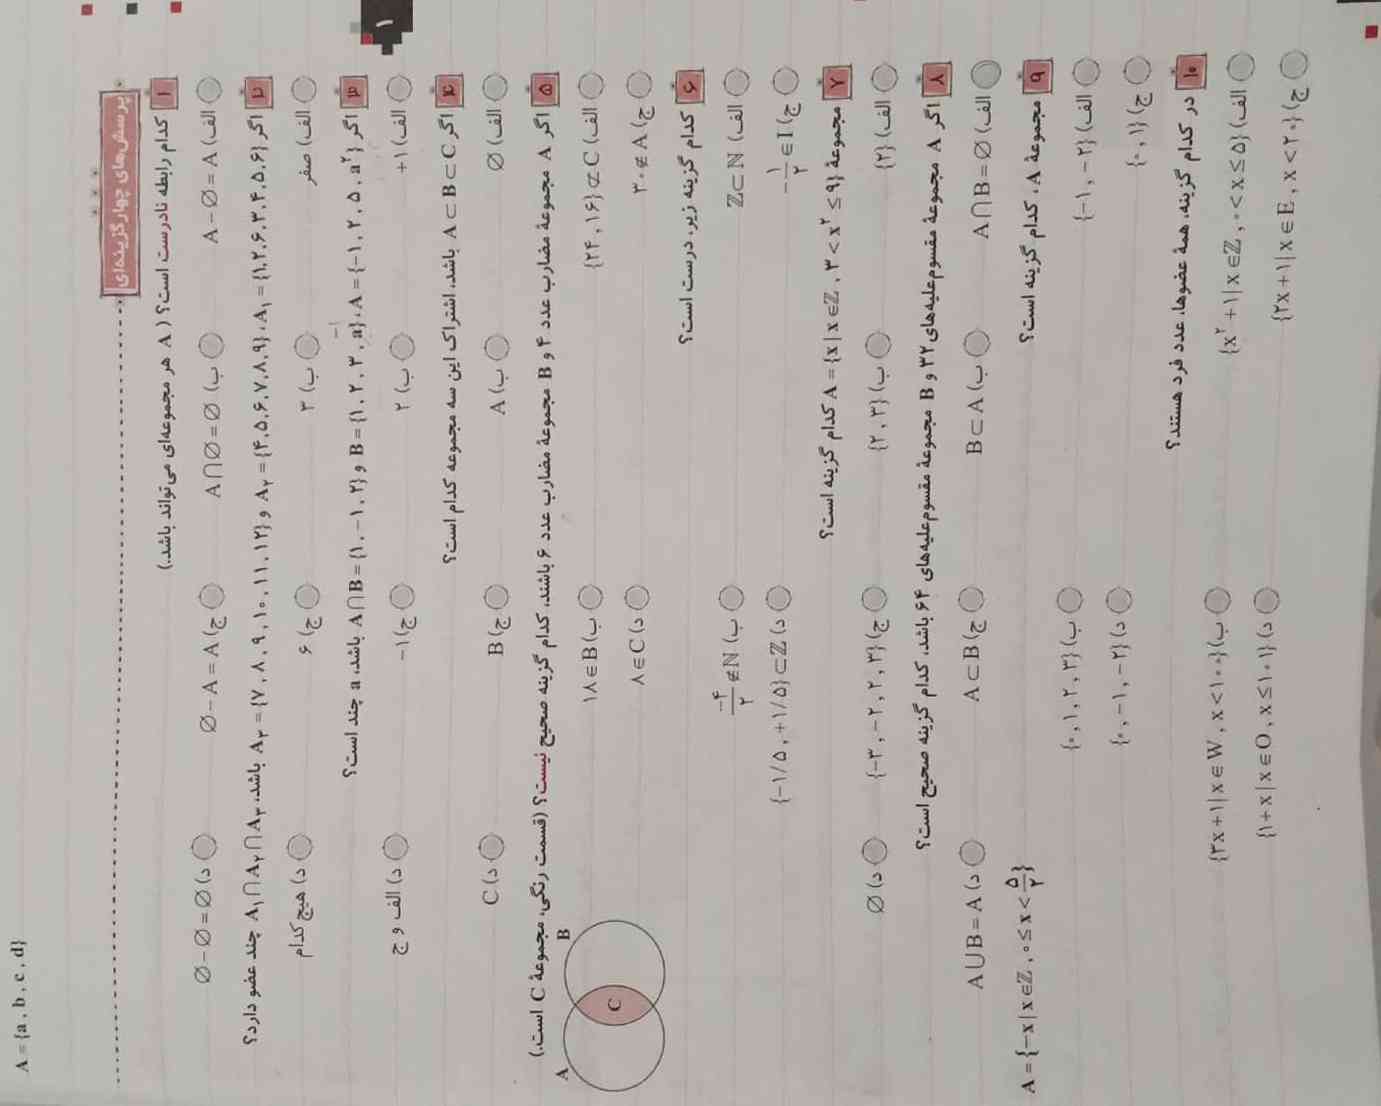 A = {a , b , c , d}
پرسش‌های چهارگزینه‌ای
۱ کدام رابطه نادرست است؟ ( A هر مجموعه‌ای می‌تواند باشد.)
الف) A − ∅ = A ب) A ∩ ∅ = ∅ ج) ∅ − A = A د) ∅ − ∅ = ∅
۲ اگر A₁ = {۱,۲,۶,۳,۴,۵,۶} ، A₂ = {۴,۵,۶,۷,۸,۹} و A₃ = {۷,۸,۹,۱۰,۱۱,۱۲} باشد، A₁ ∩ A₂ ∩ A₃ چند عضو دارد؟
الف) صفر ب) ۳ ج) ۶ د) هیچ کدام
۳ اگر A = {−۱, ۲, ۵, a²} ، B = {۱, ۲, ۳, a} و A ∩ B = {۱, −۱, ۲} باشد، a چند است؟
−۱
الف) +۱ ب) ۲ ج) −۱ د) الف و ج
۴ اگر A ⊂ B ⊂ C باشد، اشتراک این سه مجموعه کدام است؟
الف) ∅ ب) A ج) B د) C
۵ اگر A مجموعهٔ مضارب عدد ۴ و B مجموعهٔ مضارب عدد ۶ باشند، کدام گزینه صحیح نیست؟ (قسمت رنگی، مجموعهٔ C است.)
الف) {۲۴, ۱۶} ⊄ C ب) ۱۸ ∈ B
ج) ۳۰ ∉ A د) ۸ ∈ C
A B C
۶ کدام گزینه زیر، درست است؟
الف) Z ⊂ N ب) −۴/۲ ∉ N
ج) −۱/۲ ∈ I د) {−۱/۵, +۱/۵} ⊂ Z
۷ مجموعهٔ A = {x | x ∈ Z, ۳ < x² ≤ ۹} کدام گزینه است؟
الف) {۲} ب) {۲, ۳} ج) {−۳, −۲, ۲, ۳} د) ∅
۸ اگر A مجموعهٔ مقسوم‌علیه‌های ۳۲ و B مجموعهٔ مقسوم‌علیه‌های ۶۴ باشد، کدام گزینه صحیح است؟
الف) A ∩ B = ∅ ب) B ⊂ A ج) A ⊂ B د) A ∪ B = A
۹ مجموعهٔ A، کدام گزینه است؟ A = {−x | x ∈ Z, ۰ ≤ x < ۵/۲}
الف) {−۱, −۲} ب) {۰, ۱, ۲, ۳}
ج) {۰, ۱} د) {۰, −۱, −۲}
۱۰ در کدام گزینه، همهٔ عضوها، عدد فرد هستند؟
الف) {x² + ۱ | x ∈ Z, ۰ < x ≤ ۵} ب) {۳x + ۱ | x ∈ W, x < ۱۰۰}
ج) {۲x + ۱ | x ∈ E, x < ۲۰} د) {۱ + x | x ∈ O, x ≤ ۱۰۱}
۱